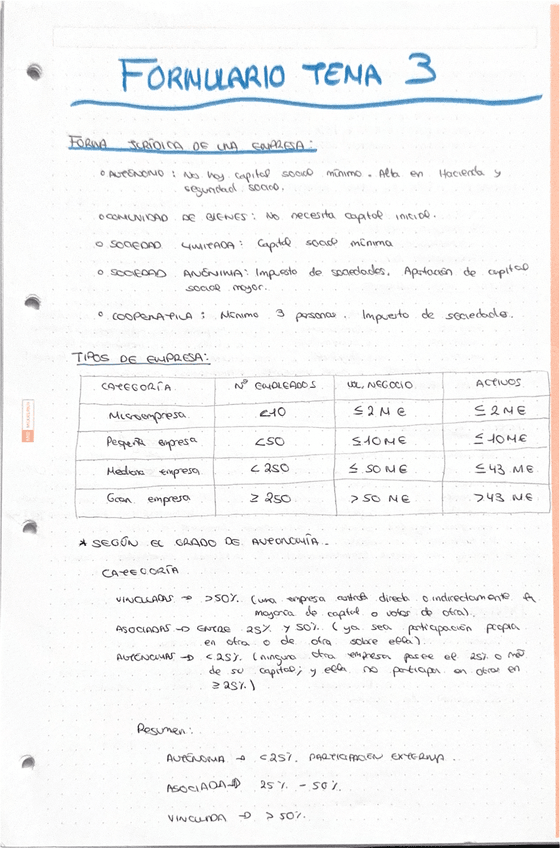 FORMULARIO TEMA 3
FORMA JURÍDICA DE UNA EMPRESA:
° AUTÓNOMO: No hay capital social mínimo. Alta en Hacienda y
seguridad social.
° COMUNIDAD DE BIENES: No necesita capital inicial.
° SOCIEDAD LIMITADA: Capital social mínima
° SOCIEDAD ANÓNIMA: Impuesto de sociedades. Aportación de capital
social mayor.
° COOPERATIVA: Mínimo 3 personas. Impuesto de sociedades.
TIPOS DE EMPRESA:
CATEGORÍA Nº EMPLEADOS VOL. NEGOCIO ACTIVOS
Microempresa <10 ≤ 2 M€ ≤ 2 M€
Pequeña empresa <50 ≤ 10 M€ ≤ 10 M€
Mediana empresa < 250 ≤ 50 M€ ≤ 43 M€
Gran empresa ≥ 250 > 50 M€ > 43 M€
* SEGÚN EL GRADO DE AUTONOMÍA.
CATEGORÍA
VINCULADAS → >50% (una empresa controla directa o indirectamente la
mayoría de capital o votos de otra).
ASOCIADAS → ENTRE 25% Y 50% (ya sea participación propia
en otra o de otra sobre ella).
AUTÓNOMAS → <25% (ninguna otra empresa posee el 25% o más
de su capital; y ella no participa en otras en
≥ 25%)
Resumen:
AUTÓNOMA → <25% PARTICIPACIÓN EXTERNA.
ASOCIADA → 25% - 50%.
VINCULADA → > 50%.